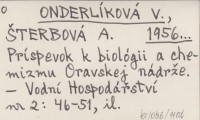 ONDERLÍKOVÁ V.,
ŠTERBOVÁ A. 1956...
Príspevok k biológii a che-
mizmu Oravskej nádrže.
– Vodní Hospodářství
nr 2: 46-51, il.